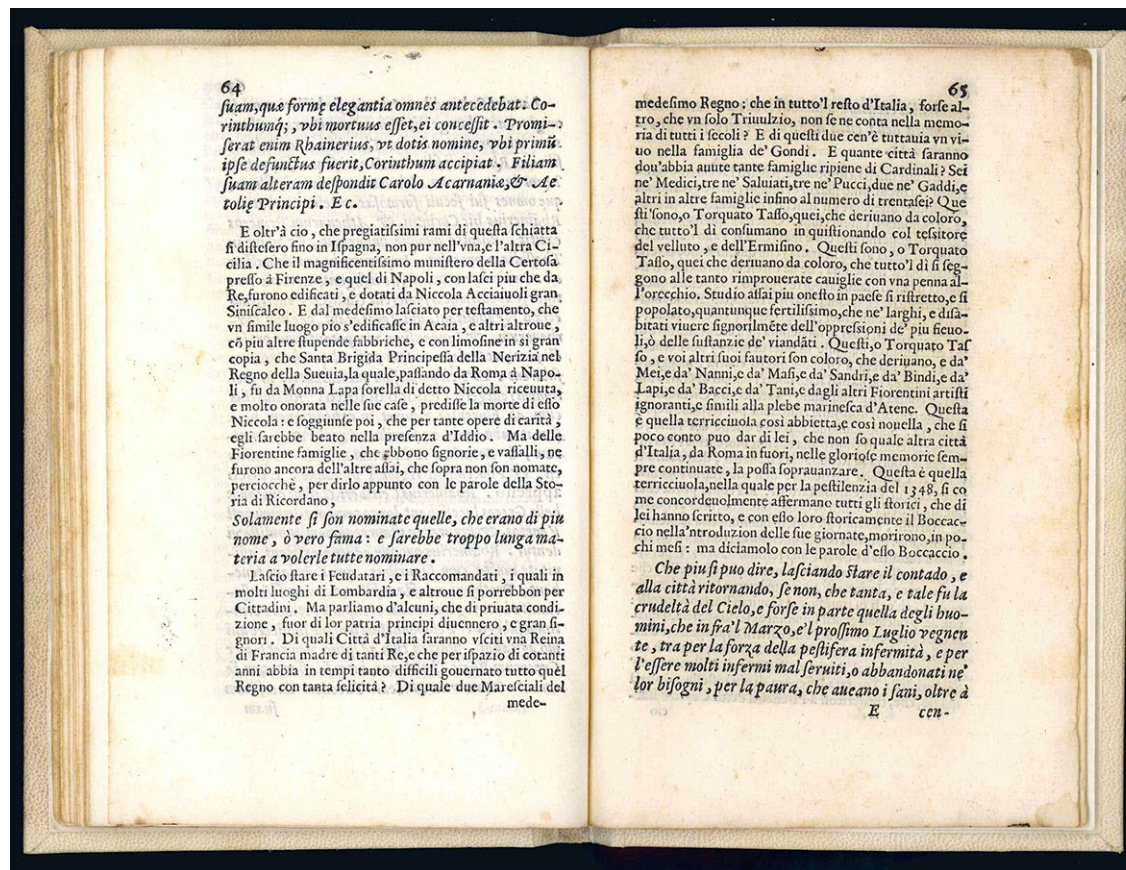 64
ſuam,quæ formę elegantia omnes antecedebat. Co-
rinthumq́;, vbi mortuus eſſet,ei conceſſit. Promi-
ſerat enim Rhainerius, vt dotis nomine, vbi primũ
ipſe defunctus fuerit,Corinthum accipiat. Filiam
ſuam alteram deſpondit Carolo Acarnaniæ,& Ae
tolię Principi. E c.
E oltr'à cio, che pregiatiſsimi rami di queſta ſchiatta
ſi diſteſero fino in Iſpagna, non pur nell'vna,e l'altra Ci-
cilia. Che il magnificentiſsimo muniſtero della Certoſa
preſſo à Firenze, e quel di Napoli, con laſci piu che da
Re,furono edificati, e dotati da Niccola Acciaiuoli gran
Siniſcalco. E dal medeſimo laſciato per teſtamento, che
vn ſimile luogo pio s'edificaſſe in Acaia, e altri altroue,
cõ piu altre ſtupende fabbriche, e con limoſine in sì gran
copia, che Santa Brigida Principeſſa della Nerizia nel
Regno della Sueuia,la quale,paſſando da Roma à Napo-
li, fu da Monna Lapa ſorella di detto Niccola riceuuta,
e molto onorata nelle ſue caſe, prediſſe la morte di eſſo
Niccola: e ſoggiunſe poi, che per tante opere di carità,
egli ſarebbe beato nella preſenza d'Iddio. Ma delle
Fiorentine famiglie, che ebbono ſignorie, e vaſſalli, ne
furono ancora dell'altre aſſai, che ſopra non ſon nomate,
perciocchè, per dirlo appunto con le parole della Sto-
ria di Ricordano,
Solamente ſi ſon nominate quelle, che erano di piu
nome, ò vero fama: e ſarebbe troppo lunga ma-
teria a volerle tutte nominare.
Laſcio ſtare i Feudatari, e i Raccomandati, i quali in
molti luoghi di Lombardia, e altroue ſi porrebbon per
Cittadini. Ma parliamo d'alcuni, che di priuata condi-
zione, fuor di lor patria principi diuennero, e gran ſi-
gnori. Di quali Città d'Italia ſaranno vſciti vna Reina
di Francia madre di tanti Re,e che per iſpazio di cotanti
anni abbia in tempi tanto difficili gouernato tutto quel
Regno con tanta felicità? Di quale due Mareſciali del
mede-
65
medeſimo Regno: che in tutto'l reſto d'Italia, forſe al-
tro, che vn ſolo Triuulzio, non ſe ne conta nella memo-
ria di tutti i ſecoli? E di queſti due cen'è tuttauia vn vi-
uo nella famiglia de' Gondi. E quante città ſaranno
dou'abbia auute tante famiglie ripiene di Cardinali? Sei
ne' Medici,tre ne' Saluiati,tre ne' Pucci,due ne' Gaddi,e
altri in altre famiglie infino al numero di trentaſei? Que
ſti ſono,o Torquato Taſſo,quei,che deriuano da coloro,
che tutto'l dì conſumano in quiſtionando col teſsitore
del velluto, e dell'Ermiſino. Queſti ſono, o Torquato
Taſſo, quei che deriuano da coloro, che tutto'l dì ſi ſeg-
gono alle tanto rimprouerate cauiglie con vna penna al-
l'orecchio. Studio aſſai piu oneſto in paeſe sì riſtretto,e sì
popolato,quantunque fertiliſsimo,che ne' larghi, e diſa-
bitati viuere ſignorilmẽte dell'oppreſsioni de' piu fieuo-
li,ò delle ſuſtanzie de' viandãti. Queſti,o Torquato Taſ
ſo, e voi altri ſuoi fautori ſon coloro, che deriuano, e da'
Mei,e da' Nanni,e da' Maſi,e da' Sandri,e da' Bindi,e da'
Lapi,e da' Bacci,e da' Tani,e dagli altri Fiorentini artiſti
ignoranti,e ſimili alla plebe marineſca d'Atene. Queſta
è quella terricciuola così abbietta,e così nouella, che ſi
poco conto puo dar di lei, che non ſo quale altra città
d'Italia, da Roma in fuori, nelle glorioſe memorie ſem-
pre continuate, la poſſa ſoprauanzare. Queſta è quella
terricciuola,nella quale per la peſtilenzia del 1348, ſi co
me concordeuolmente affermano tutti gli ſtorici, che di
lei hanno ſcritto, e con eſſo loro ſtoricamente il Boccac-
cio nella'ntroduzion delle ſue giornate,morirono,in po-
chi meſi: ma diciamolo con le parole d'eſſo Boccaccio.
Che piu ſi puo dire, laſciando ſtare il contado, e
alla città ritornando, ſe non, che tanta, e tale fu la
crudeltà del Cielo,e forſe in parte quella degli huo-
mini,che in fra'l Marzo,e'l proſſimo Luglio vegnen
te, tra per la forza della peſtifera infermità, e per
l'eſſere molti infermi mal ſeruiti,o abbandonati ne'
lor biſogni, per la paura, che aueano i ſani, oltre à
E cen-